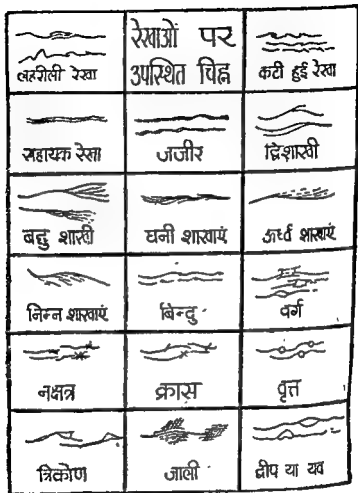 लहरीली रेखा
रेखाओं पर
उपस्थित चिह्न
कटी हुई रेखा
सहायक रेखा
जजीर
द्विशाखी
बहु शाखी
घनी शाखाएं
ऊर्ध्व शाखाएं
निम्न शाखाएं
बिन्दु
वर्ग
नक्षत्र
क्रास
वृत्त
त्रिकोण
जाली
द्वीप या यव